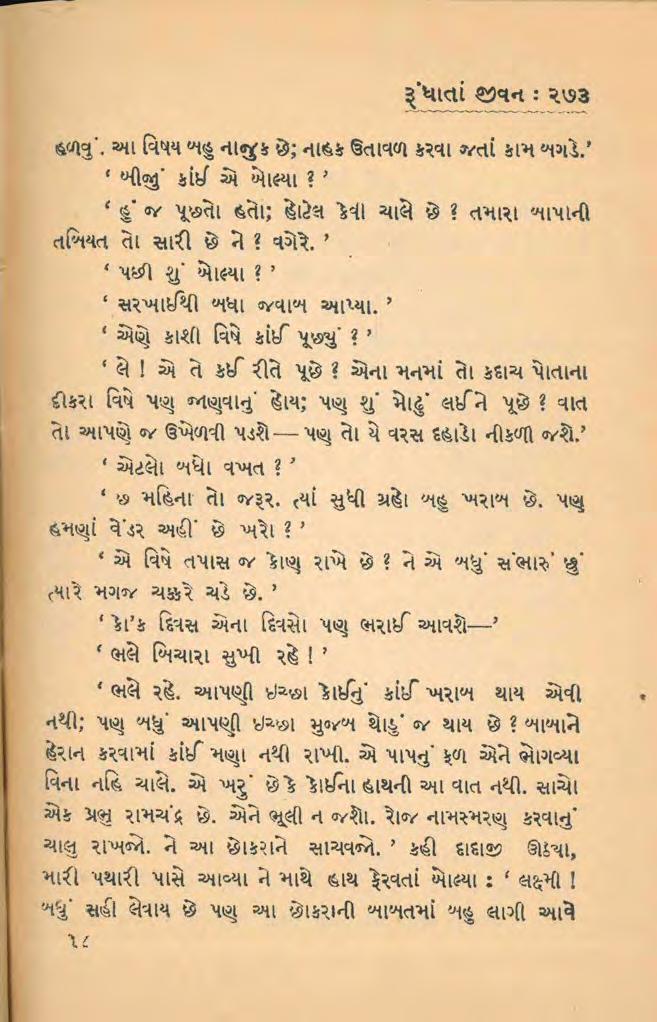 રૂંધાતાં જીવન : ૨૭૩
હળવું. આ વિષય બહુ નાજુક છે; નાહક ઉતાવળ કરવા જતાં કામ બગડે.’
‘ બીજું કાંઈ એ બોલ્યા ? ’
‘ હું જ પૂછતો હતો; હોટેલ કેવી ચાલે છે ? તમારા બાપાની
તબિયત તો સારી છે ને ? વગેરે. ’
‘ પછી શું બોલ્યા ? ’
‘ સરખાઈથી બધા જવાબ આપ્યા. ’
‘ એણે કાશી વિષે કાંઈ પૂછ્યું ? ’
‘ લે ! એ તે કઈ રીતે પૂછે ? એના મનમાં તો કદાચ પોતાના
દીકરા વિષે પણ જાણવાનું હોય; પણ શું મોઢું લઈને પૂછે ? વાત
તો આપણે જ ઉખેળવી પડશે— પણ તો યે વરસ દહાડો નીકળી જશે.’
‘ એટલો બધો વખત ? ’
‘ છ મહિના તો જરૂર. ત્યાં સુધી ગ્રહો બહુ ખરાબ છે. પણ
હમણાં વેંડર અહીં છે ખરો ? ’
‘ એ વિષે તપાસ જ કોણ રાખે છે ? ને એ બધું સંભારું છું
ત્યારે મગજ ચક્કરે ચડે છે. ’
‘ કો'ક દિવસ એના દિવસો પણ ભરાઈ આવશે—’
‘ ભલે બિચારા સુખી રહે ! ’
‘ ભલે રહે. આપણી ઇચ્છા કોઈનું કાંઈ ખરાબ થાય એવી
નથી; પણ બધું આપણી ઇચ્છા મુજબ થોડું જ થાય છે ? બાબાને
હેરાન કરવામાં કાંઈ મણા નથી રાખી. એ પાપનું ફળ એને ભોગવ્યા
વિના નહિ ચાલે. એ ખરું છે કે કોઈના હાથની આ વાત નથી. સાચો
એક પ્રભુ રામચંદ્ર છે. એને ભૂલી ન જશો. રોજ નામસ્મરણ કરવાનું
ચાલુ રાખજો. ને આ છોકરાને સાચવજો. ’ કહી દાદાજી ઊઠ્યા,
મારી પથારી પાસે આવ્યા ને માથે હાથ ફેરવતાં બોલ્યા : ‘ લક્ષ્મી !
બધું સહી લેવાય છે પણ આ છોકરાની બાબતમાં બહુ લાગી આવે
૧૮